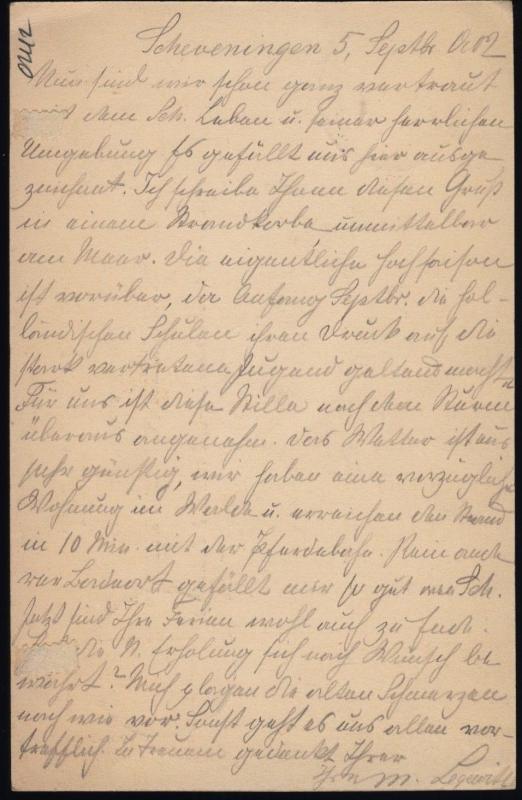 Scheveningen 5, Septbr 02
Nun sind wir schon ganz vertraut
mit dem Sch. Leben u. seiner herrlichen
Umgebung Es gefällt uns hier ausge
zeichnet. Ich schreibe Ihnen diesen Gruß
in einem Strandkorbe unmittelbar
am Meer. Die eigentliche Hochsaison
ist vorüber, da Anfang Septbr. die hol-
ländischen Schulen ihren Druck auf die
stark vertretene Jugend geltend machten
Für uns ist diese Stille nach dem Sturm
überaus angenehm. Das Wetter ist uns
sehr günstig, wir haben eine vorzügliche
Wohnung im Walde u. erreichen den Strand
in 10 Min. mit der Pferdebahn. Kein ande
rer Badeort gefällt mir so gut wie Sch.
Jetzt sind Ihre Ferien wohl auch zu Ende.
die Erholung sich nach Wunsch be
währt? Mich plagen die alten Schmerzen
nach wie vor. Sonst geht es uns allen vor-
trefflich. In Treuem gedenkt Ihrer
Ihre M.